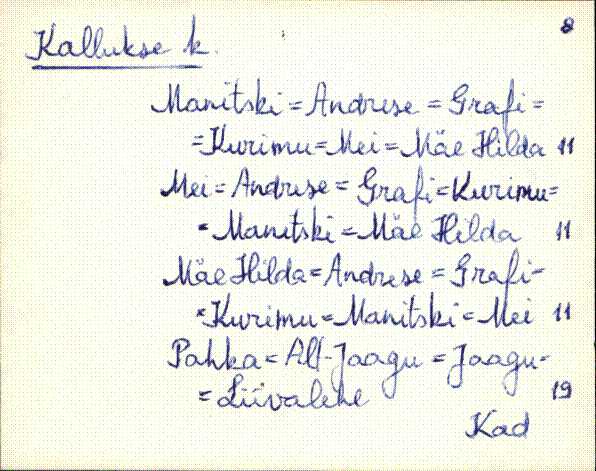 8
Kallukse k.
Manitski = Andruse = Grafi =
= Kurimu = Mei = Mäe Hilda 11
Mei = Andruse = Grafi = Kurimu =
= Manitski = Mäe Hilda 11
Mäe Hilda = Andruse = Grafi =
= Kurimu = Manitski = Mei 11
Pahka = Alt-Jaagu = Jaagu =
= Liivalehe 19
Kad